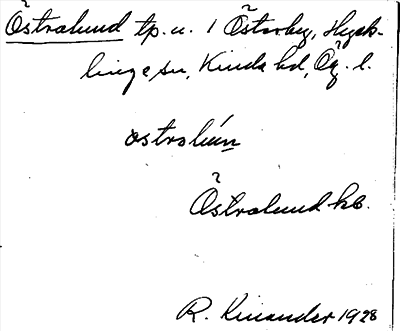 Östralund tp. u. 1 Österby, Hyck-
linge sn, Kinda hd, Ög. l.
ostralún
Östralund kb.
R. Kinander 1928